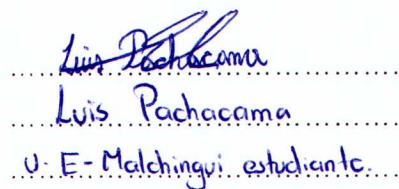 Luis Pachacama
Luis Pachacama
U. E - Malchingui estudiante.